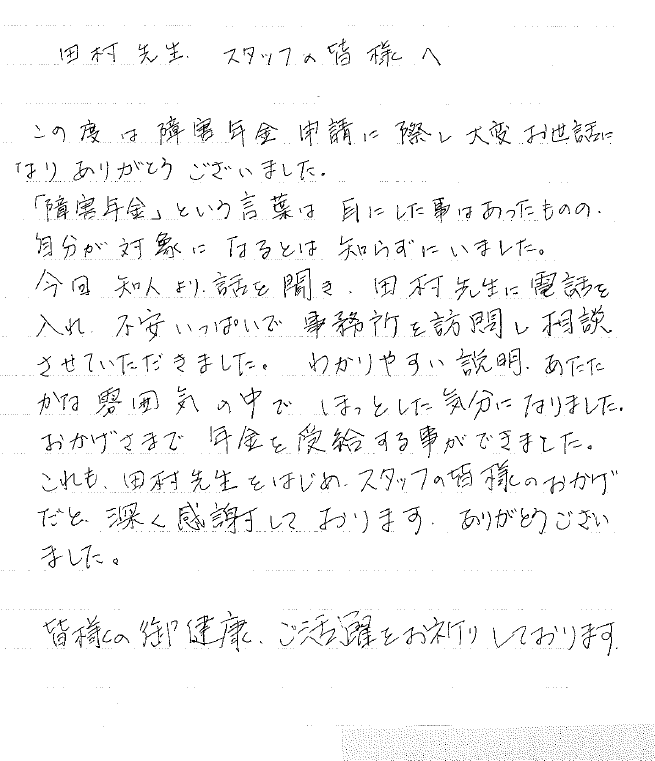 田村先生、スタッフの皆様へ
この度は障害年金申請に際し大変お世話に
なりありがとうございました。
「障害年金」という言葉は目にした事はあったものの、
自分が対象になるとは知らずにいました。
今回知人より、話を聞き、田村先生に電話を
入れ、不安いっぱいで事務所を訪問し相談
させていただきました。わかりやすい説明、あたた
かな雰囲気の中でほっとした気分になりました。
おかげさまで年金を受給する事ができました。
これも、田村先生をはじめ、スタッフの皆様のおかげ
だと、深く感謝しております。ありがとうござい
ました。
皆様の御健康、ご活躍をお祈りしております。